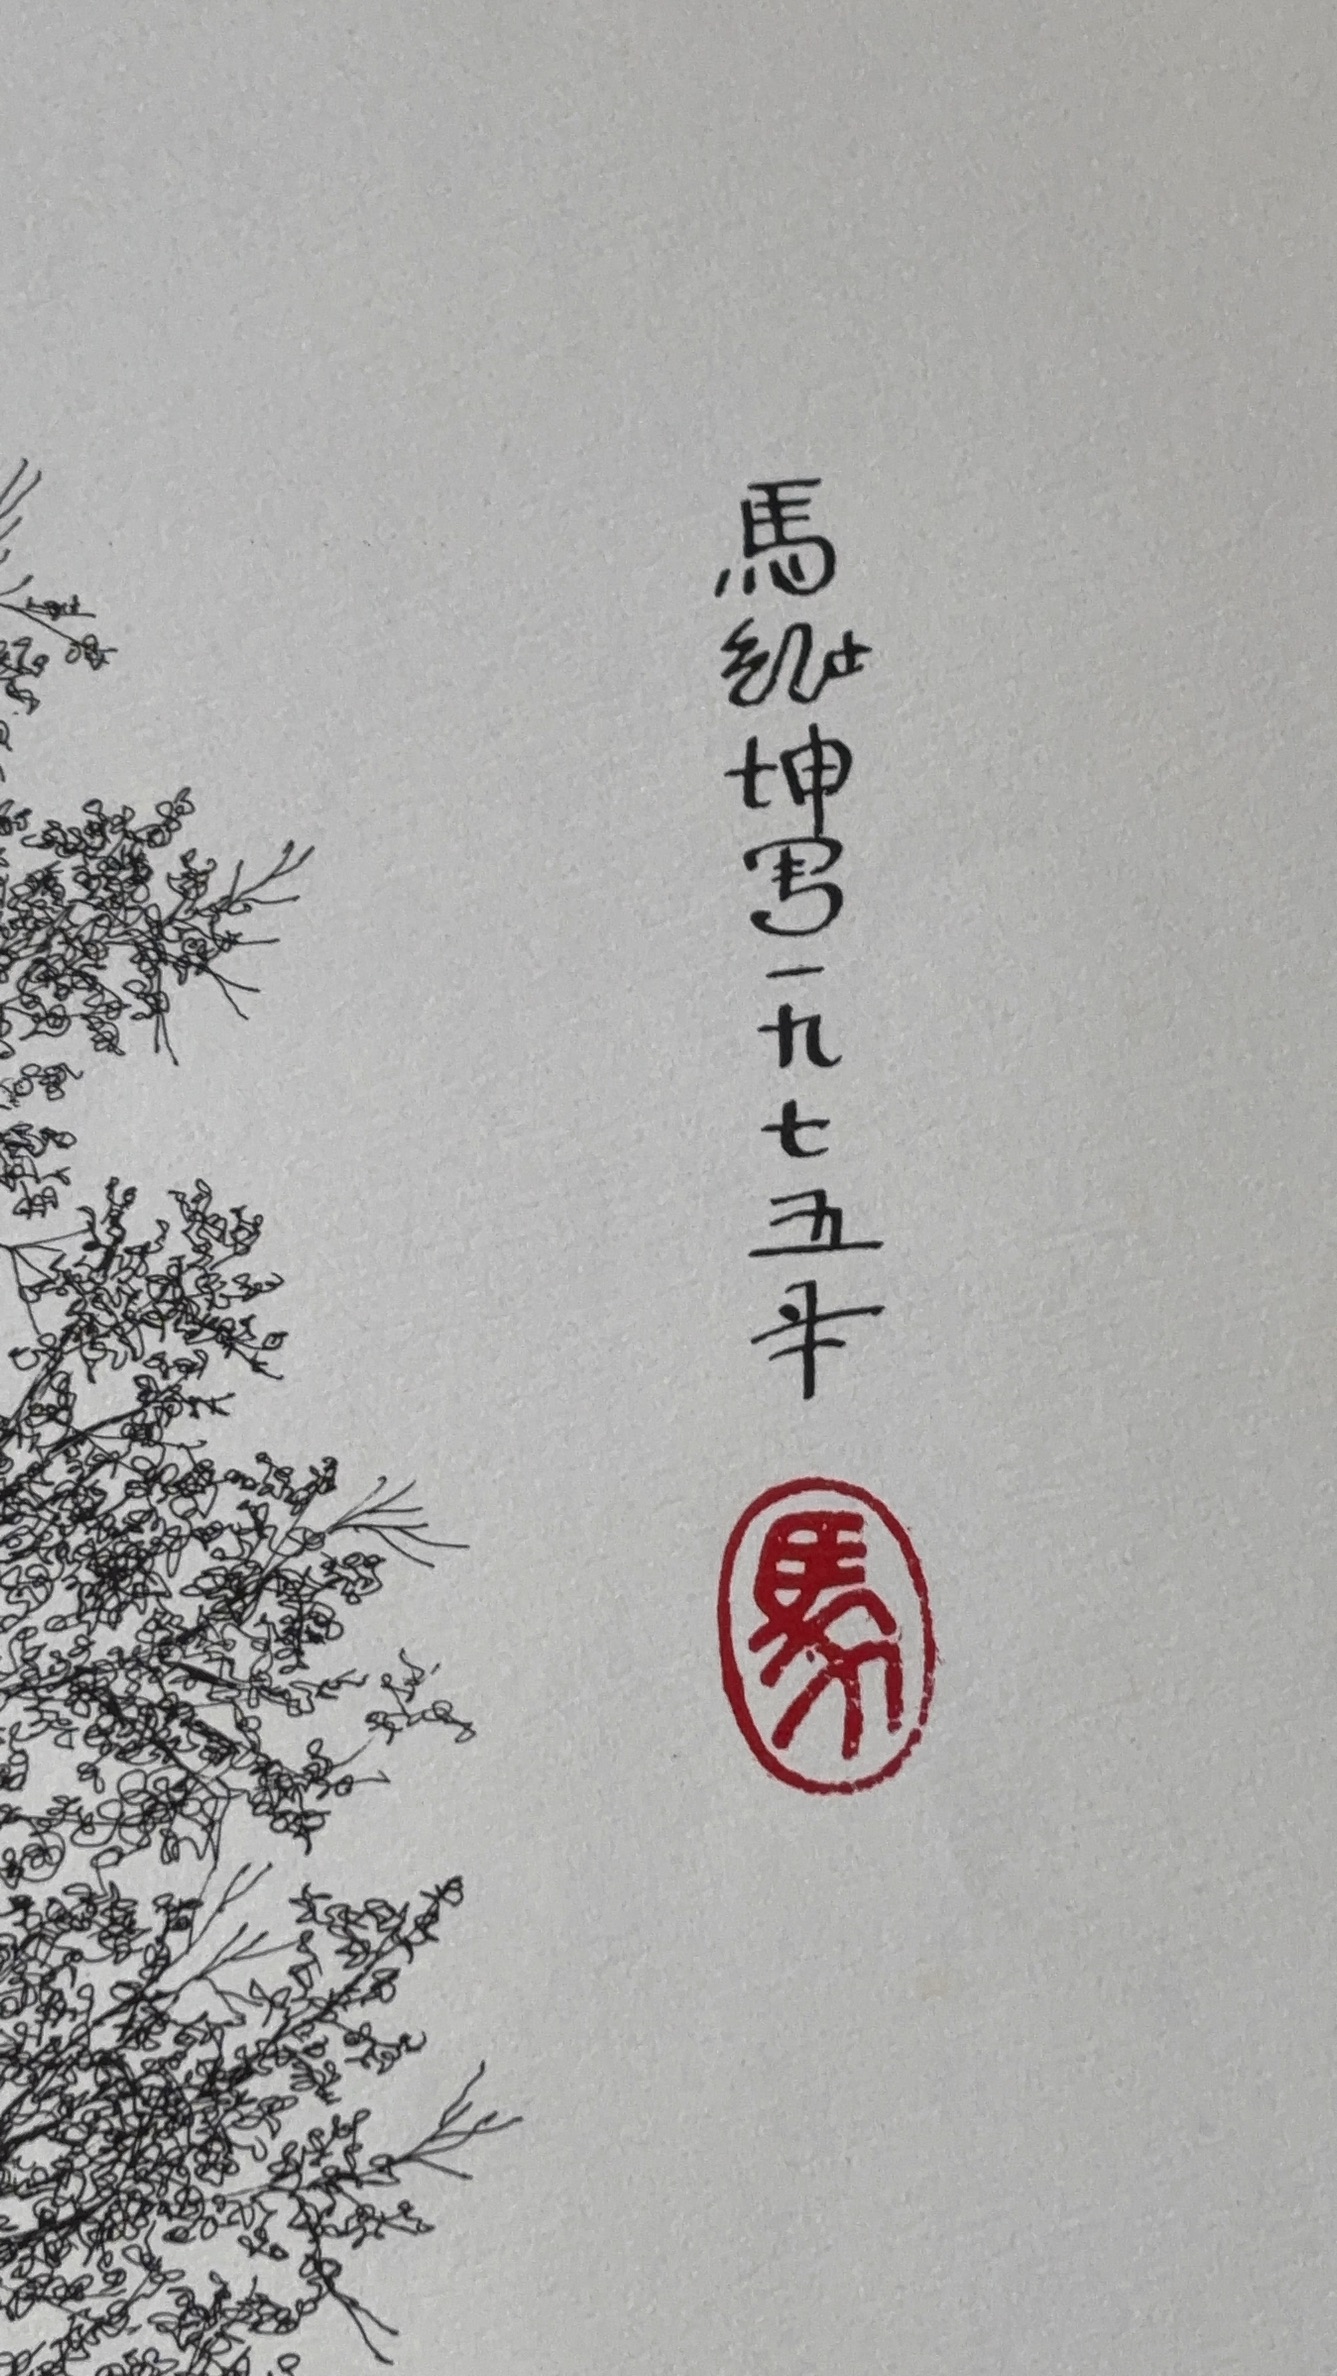 馬坤写一九七五年
馬